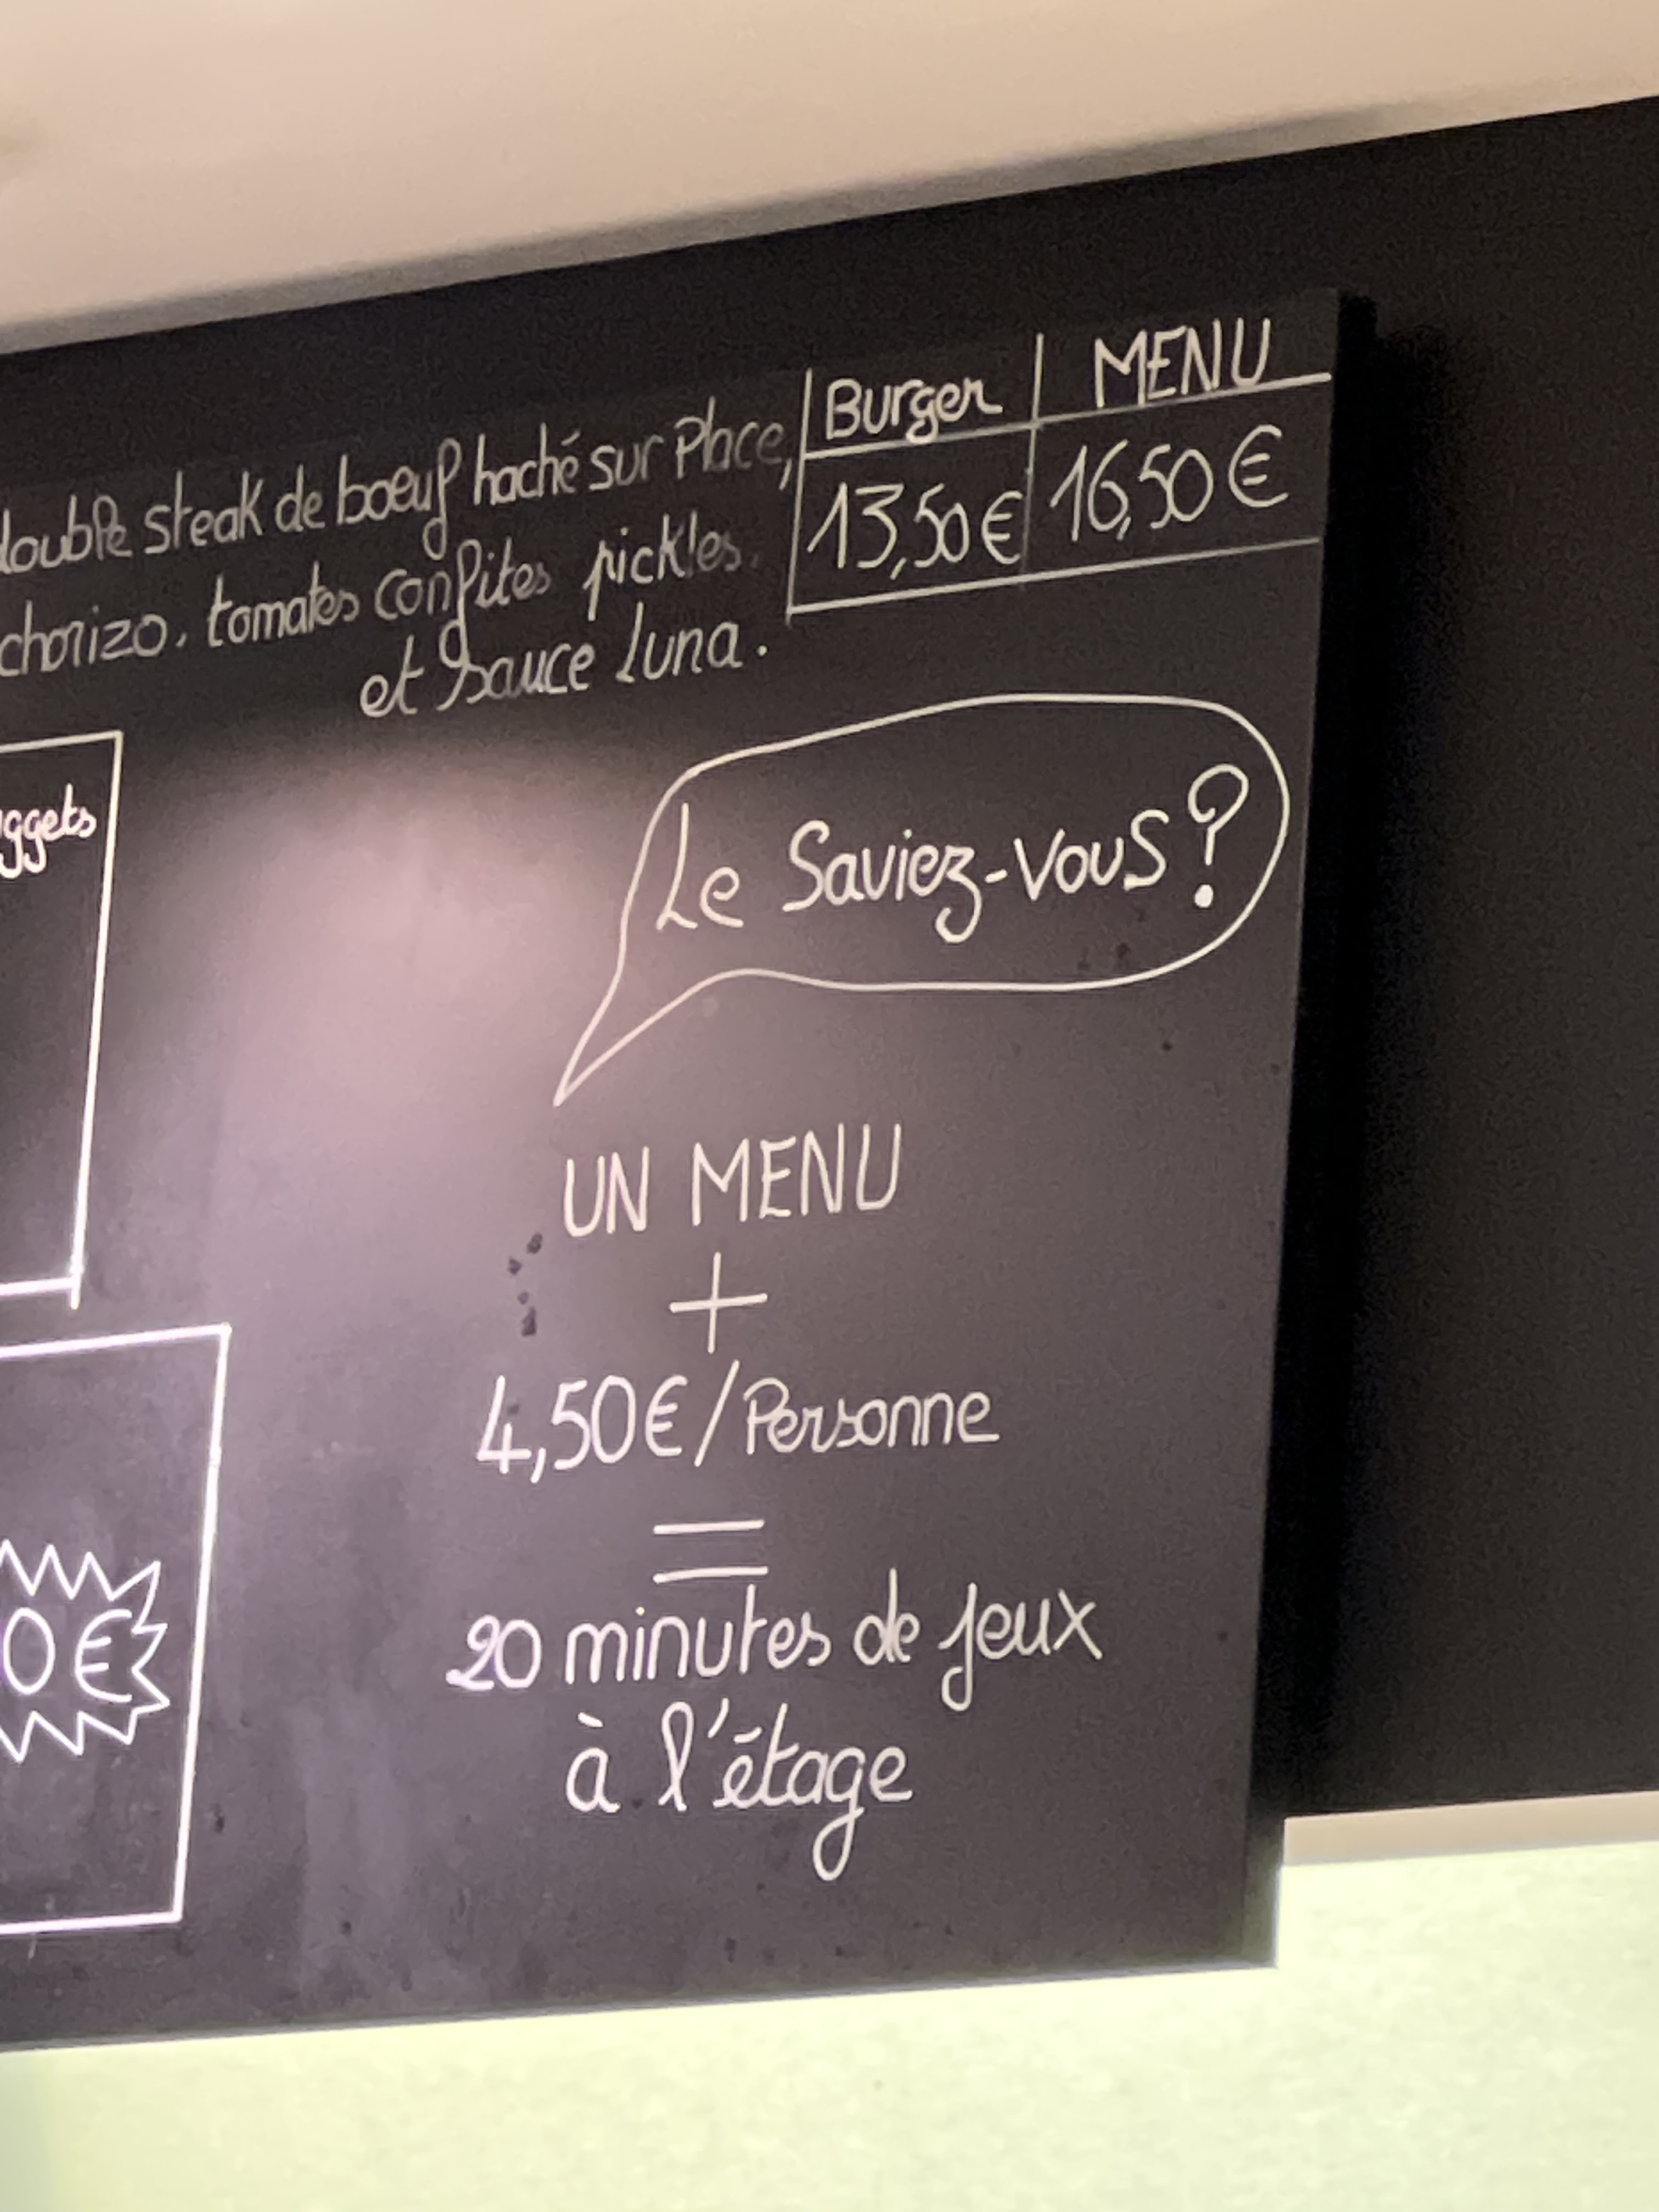 Burger MENU
double steak de boeuf haché sur Place, 13,50€ 16,50€
chorizo, tomates confites pickles.
et sauce Luna.
Le Saviez-vous?
UN MENU
+
4,50€/Personne
=
20 minutes de jeux
à l'étage
0€